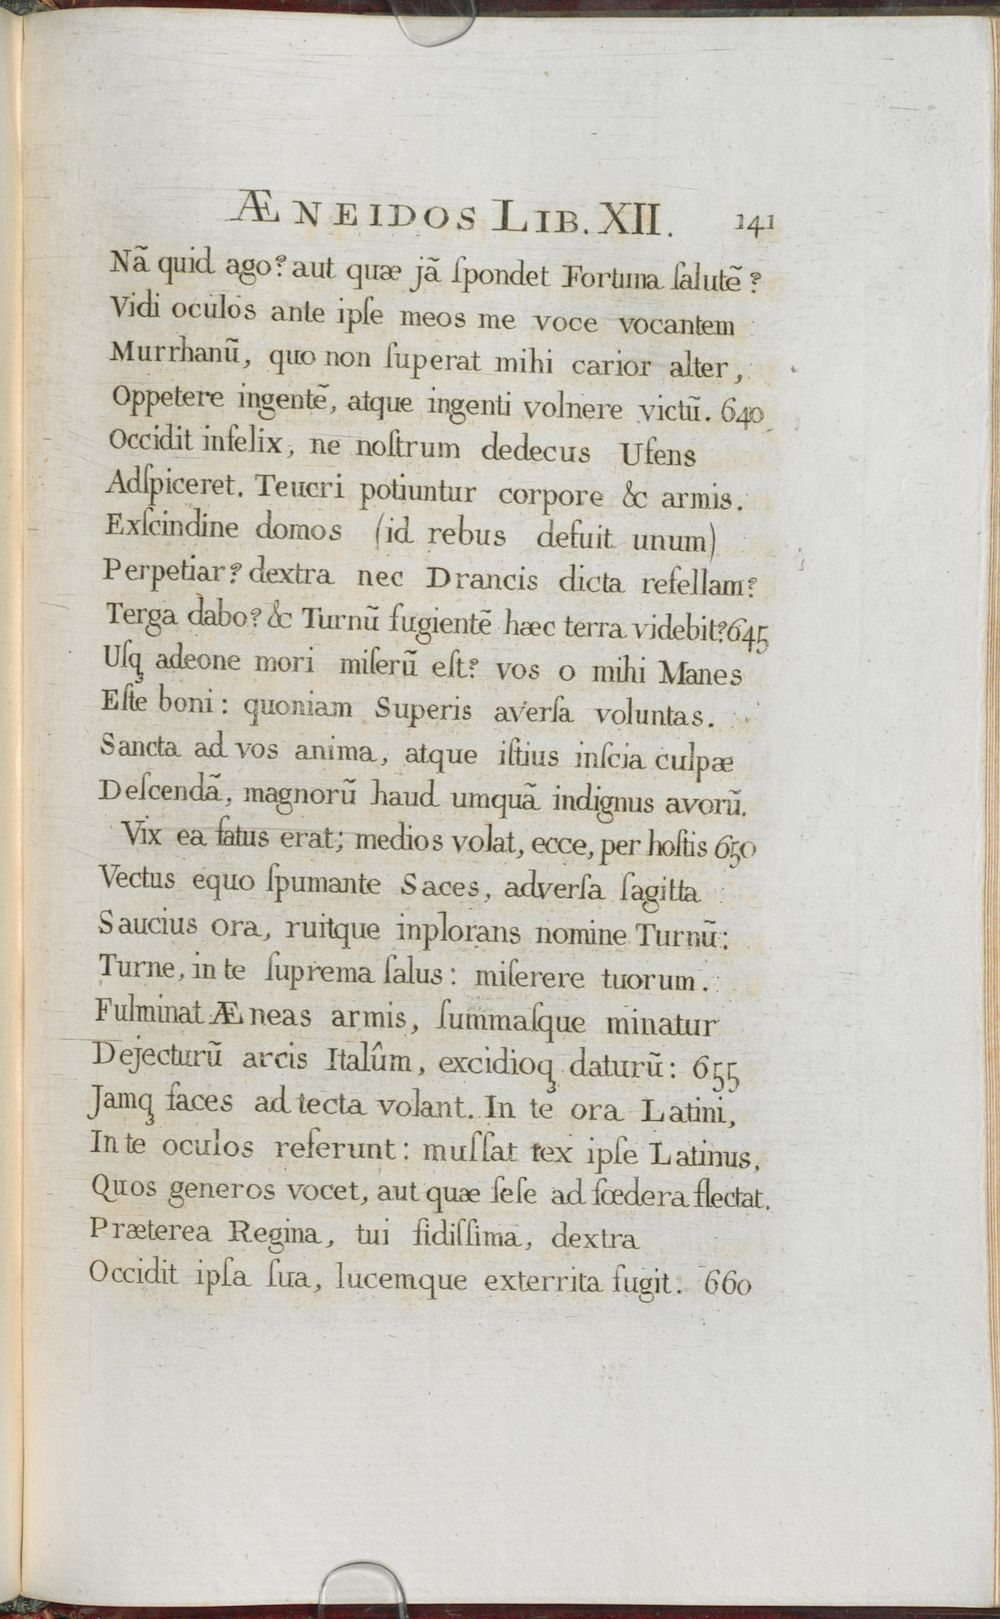 ÆNEIDOS LIB. XII. 141
Nã quid ago? aut quæ jã ſpondet Fortuna ſalutẽ?
Vidi oculos ante ipſe meos me voce vocantem
Murrhanũ, quo non ſuperat mihi carior alter,
Oppetere ingentẽ, atque ingenti volnere victũ. 640
Occidit infelix, ne noſtrum dedecus Ufens
Adſpiceret. Teucri potiuntur corpore & armis.
Exſcindine domos (id rebus defuit unum)
Perpetiar? dextra nec Drancis dicta refellam?
Terga dabo? & Turnũ fugientẽ hæc terra videbit? 645
Uſqꝫ adeone mori miſerũ eſt? vos o mihi Manes
Eſte boni: quoniam Superis averſa voluntas.
Sancta ad vos anima, atque iſtius inſcia culpæ
Deſcendã, magnorũ haud umquã indignus avorũ.
Vix ea fatus erat; medios volat, ecce, per hoſtis 650
Vectus equo ſpumante Saces, adverſa ſagitta
Saucius ora, ruitque inplorans nomine Turnũ:
Turne, in te ſuprema ſalus: miſerere tuorum.
Fulminat Æneas armis, ſummaſque minatur
Dejecturũ arcis Italûm, excidioqꝫ daturũ: 655
Jamqꝫ faces ad tecta volant. In te ora Latini,
In te oculos referunt: muſſat rex ipſe Latinus,
Quos generos vocet, aut quæ ſeſe ad fœdera flectat.
Præterea Regina, tui fidiſſima, dextra
Occidit ipſa ſua, lucemque exterrita fugit. 660